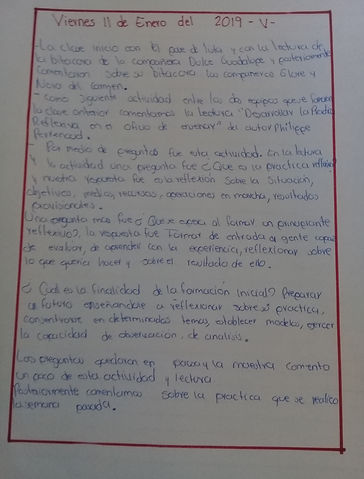 Viernes 11 de Enero del 2019 -V-
-La clase inicio con el pase de lista y con la lectura de
la bitacora de la compañera Dulce Guadalupe y posteriormente
comentaron sobre su bitacora los compañeros Elore y
Neiva del Carmen.
- Como siguiente actividad entre los dos equipos que se formaron
la clase anterior comentamos la lectura "Desarrollar la Práctica
Reflexiva, en el oficio de enseñar" del autor Philippe
Perrenoud.
- Por medio de preguntas fue esta actividad. En la lectura
y la actividad una pregunta fue ¿Que es la practica reflexiva
y nuestra respuesta fue es la reflexión sobre la situación,
objetivos, medios, recursos, operaciones en marcha, resultados
provisionales.
Una pregunta mas fue ¿ Que se espera al formar un principiante
reflexivo?, la respuesta fue Formar de entrada a gente capaz
de evaluar, de aprender con la experiencia, reflexionar sobre
lo que quería hacer y sobre el resultado de ello.
¿ Cuál es la finalidad de la formación inicial? Preparar
al futuro enseñandole a reflexionar sobre su práctica,
concentrarse en determinados temas, establecer modelos, ejercer
la capacidad de observación, de analisis.
Las preguntas quedaron en pausa y la maestra comento
un poco de esta actividad y lectura
Posteriormente comentamos sobre la practica que se realizo
la semana pasada.